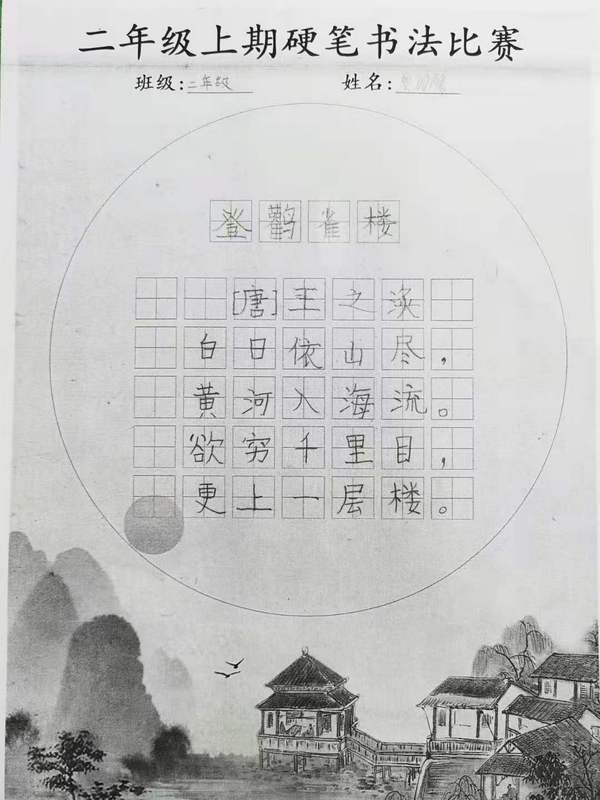 二年级上期硬笔书法比赛
班级:二年级 姓名:
登鹳雀楼
[唐]王之涣
白日依山尽，
黄河入海流。
欲穷千里目，
更上一层楼。